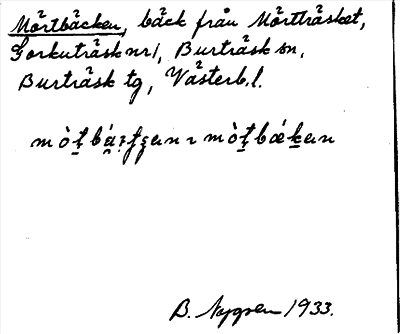 Mörtbäcken, bäck från Mörtträsket,
Gorkuträsk nr 1, Burträsk sn,
Burträsk tg, Västerb. l.
B. Nygren 1933.